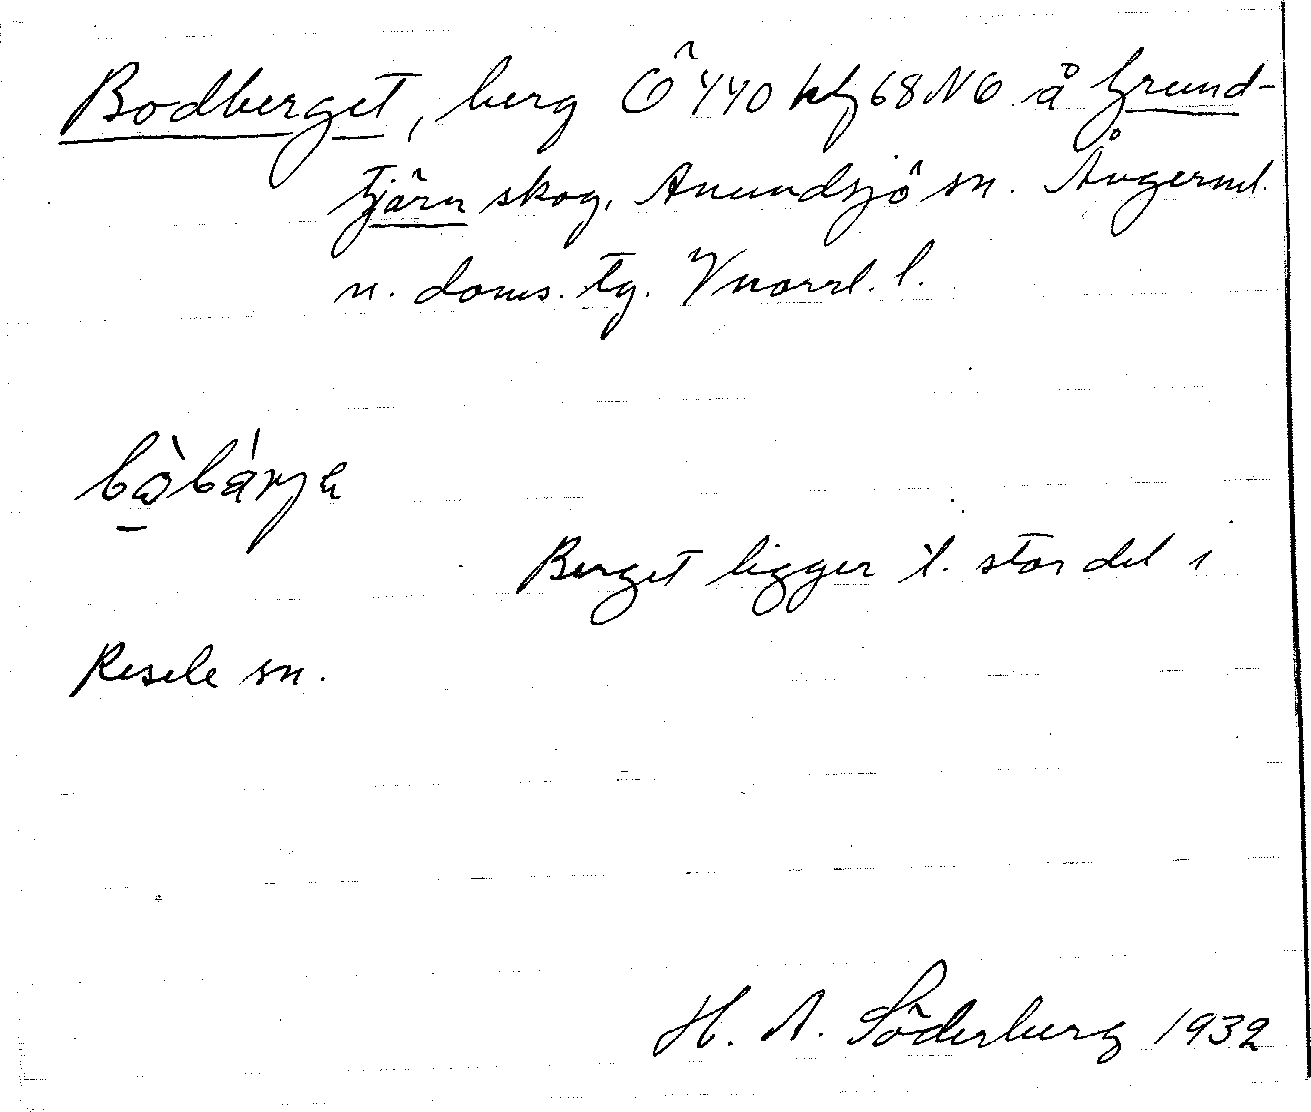 Bodberget, berg Ö 440 kbl 68 NO å Grund-
tjärn skog, Anundsjö sn. Ångerml.
n. doms. tg. Vnorrl. l.
Berget ligger t. stor del i
Resele sn.
H. A. Söderberg 1932